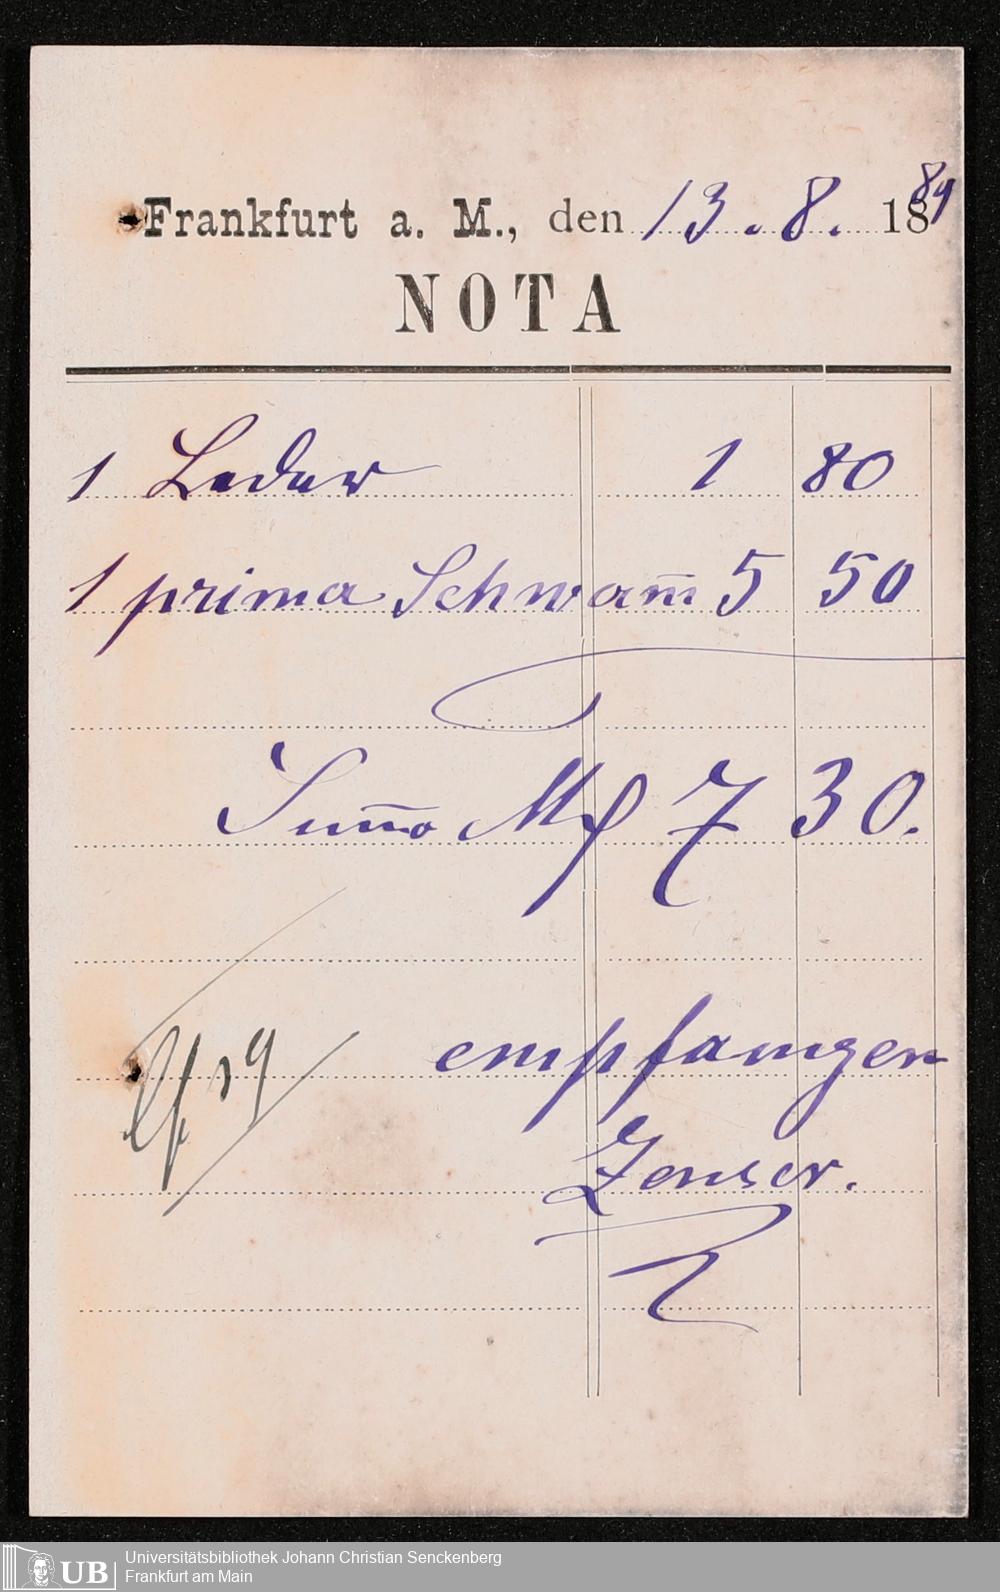 Frankfurt a. M., den 13. 8. 1889
NOTA
1 Leder 1 80
1 prima Schwam̄ 5 50
Sum̄a Mk 7 30.
empfangen
Zenser.
UB
Universitätsbibliothek Johann Christian Senckenberg
Frankfurt am Main